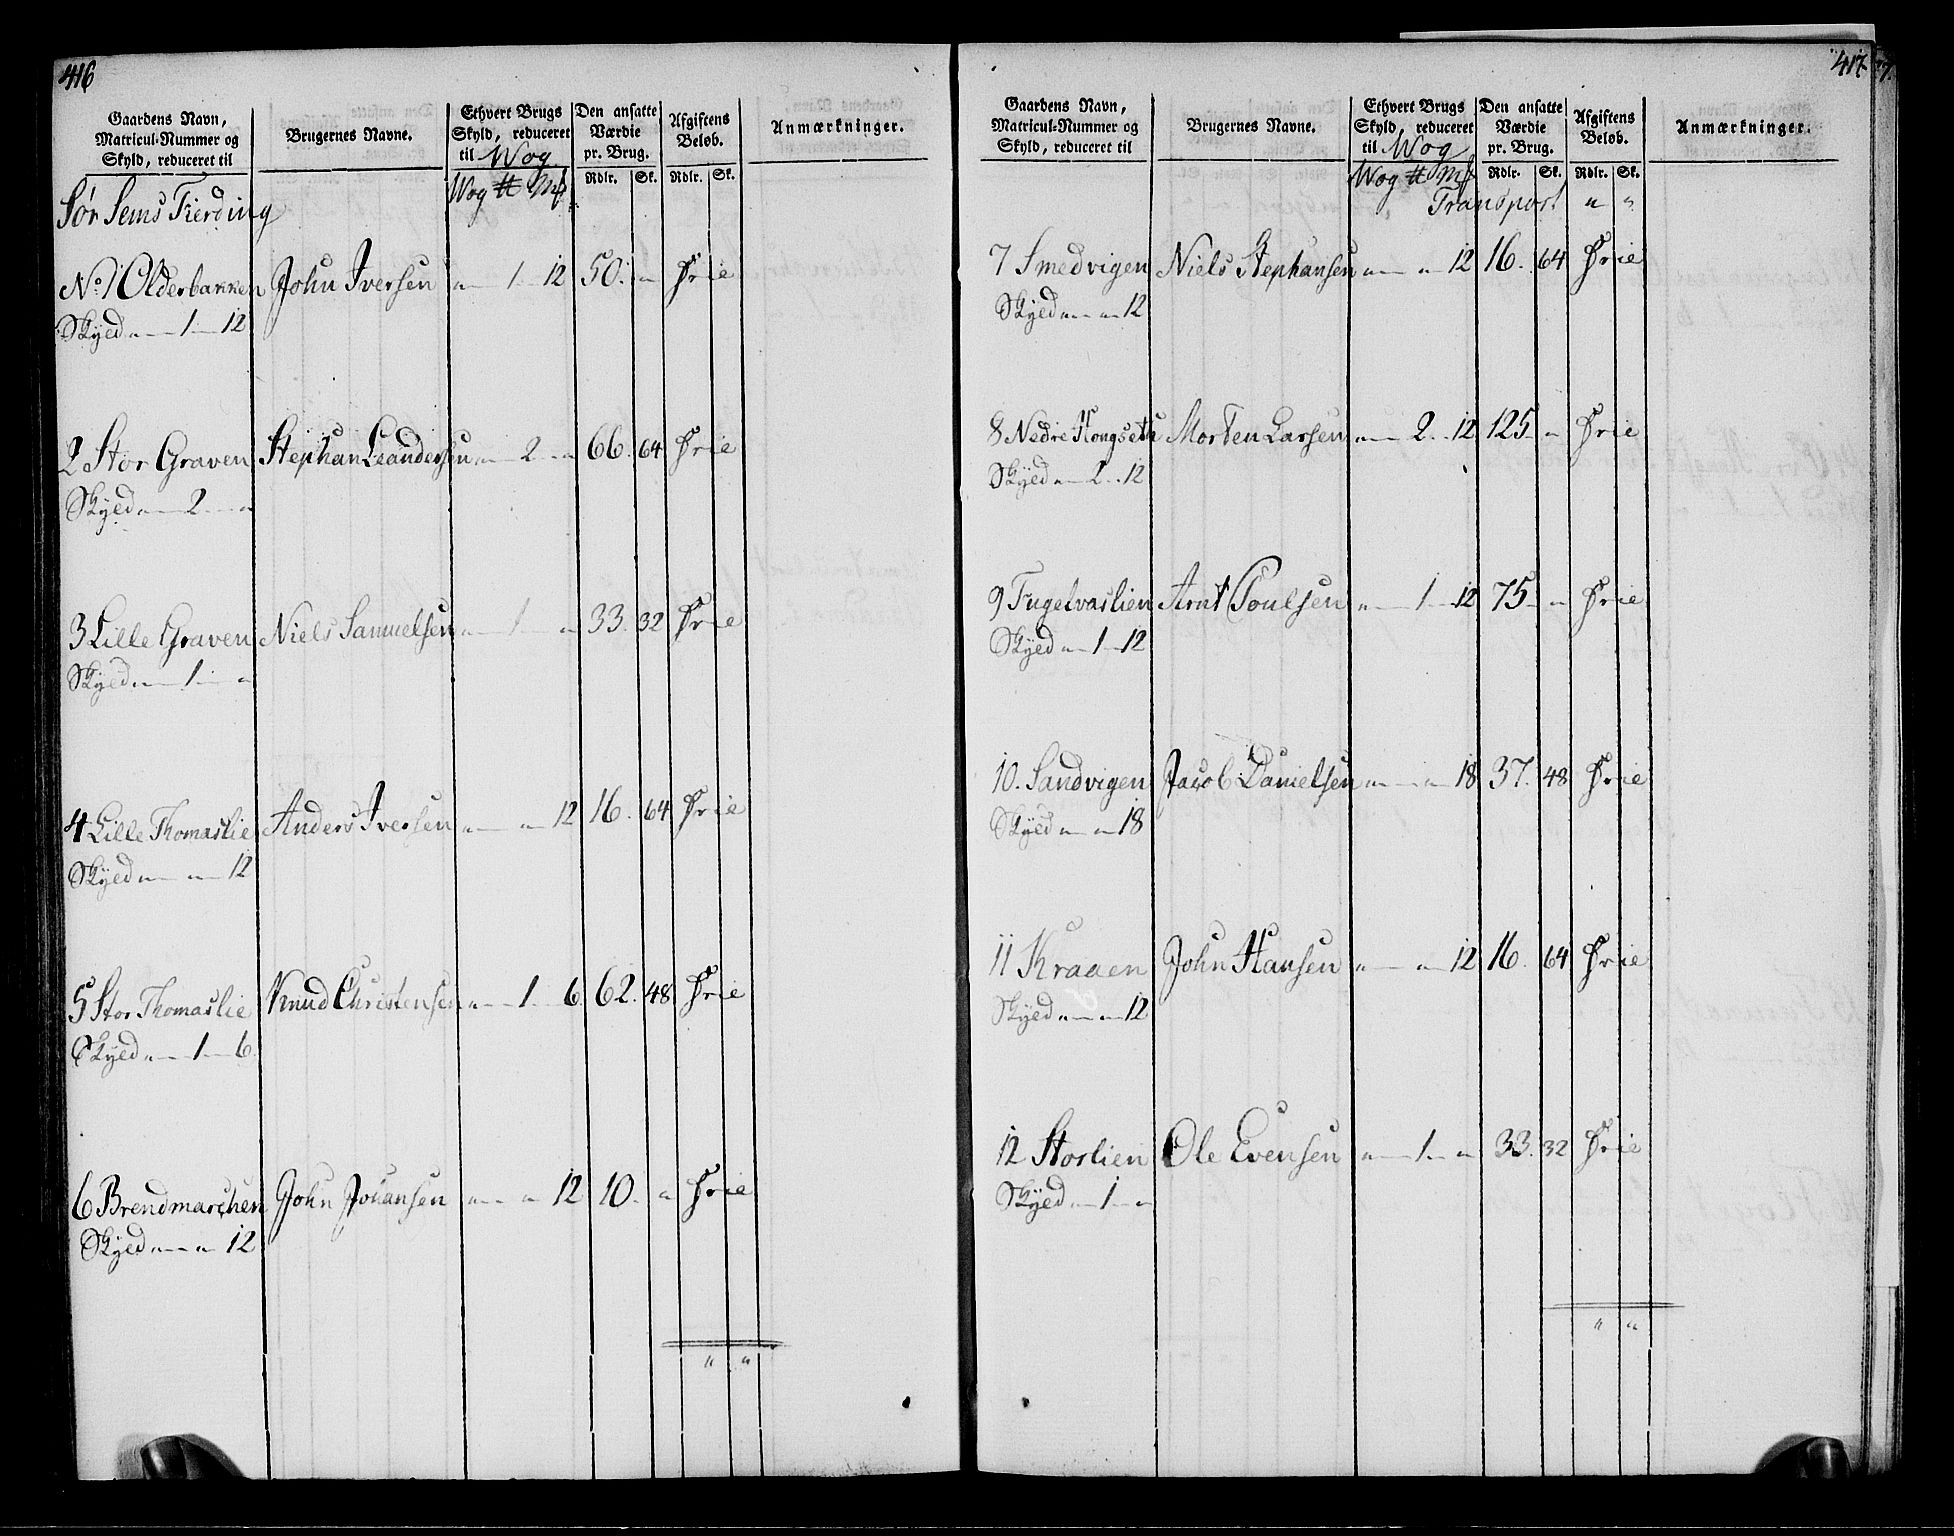 416
Gaardens Navn, Matricul-Nummer og Skyld, reduceret til | Brugernes Navne. | Ethvert Brugs Skyld, reduceret til Wog | Den ansatte Værdie pr. Brug. | Afgiftens Beløb. | Anmærkninger.
Wog ℔ Mk | Rdlr. | Sk. | Rdlr. | Sk.
Sør Sems Fierding
No 1 Olderbakken John Iversen „ 1 12 50. „ Frie
Skyld „ 1 12
2 Stor Graven Stephan Leandersen „ 2 „ 66. 64 Frie
Skyld „ 2 „
3 Lille Graven Niels Samuelsen „ 1 „ 33. 32 Frie
Skyld „ 1 „
4 Lille Thomaslie Anders Iversen „ „ 12 16. 64 Frie
Skyld „ „ 12
5 Stor Thomaslie Knud Christensen „ 1 6 62. 48 Frie
Skyld „ 1 6
6 Brendmarchen John Johansen „ „ 12 10. „ Frie
Skyld „ „ 12
„ „
417
Gaardens Navn, Matricul-Nummer og Skyld, reduceret til | Brugernes Navne. | Ethvert Brugs Skyld, reduceret til Wog | Den ansatte Værdie pr. Brug. | Afgiftens Beløb. | Anmærkninger.
Wog ℔ Mk | Rdlr. | Sk. | Rdlr. | Sk.
Transport „ „
7 Smedvigen Niels Stephansen „ „ 12 16. 64 Frie
Skyld „ „ 12
8 Nedre Kongseth Morten Larsen „ 2 12 125 „ Frie
Skyld „ 2 12
9 Fugelvaslien Arnt Poulsen „ 1 12 75 „ Frie
Skyld „ 1 12
10. Sandvigen Jacob Danielsen „ „ 18 37. 48 Frie
Skyld „ „ 18
11 Kraaen John Hansen „ „ 12 16. 64 Frie
Skyld „ „ 12
12 Storlien Ole Evensen „ 1 „ 33. 32 Frie
Skyld „ 1 „
„ „